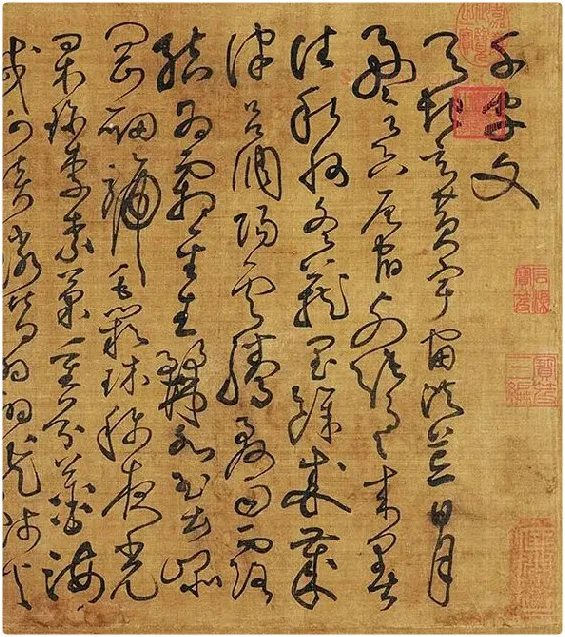 千字文
天地玄黃宇宙洪荒日月
盈昃辰宿列張寒來暑
往秋收冬藏閏餘成歲
律呂調陽雲騰致雨露
結為霜金生麗水玉出崑
岡劍號巨闕珠稱夜光
果珍李柰菜重芥薑海
鹹河淡鱗潛羽翔龍師火